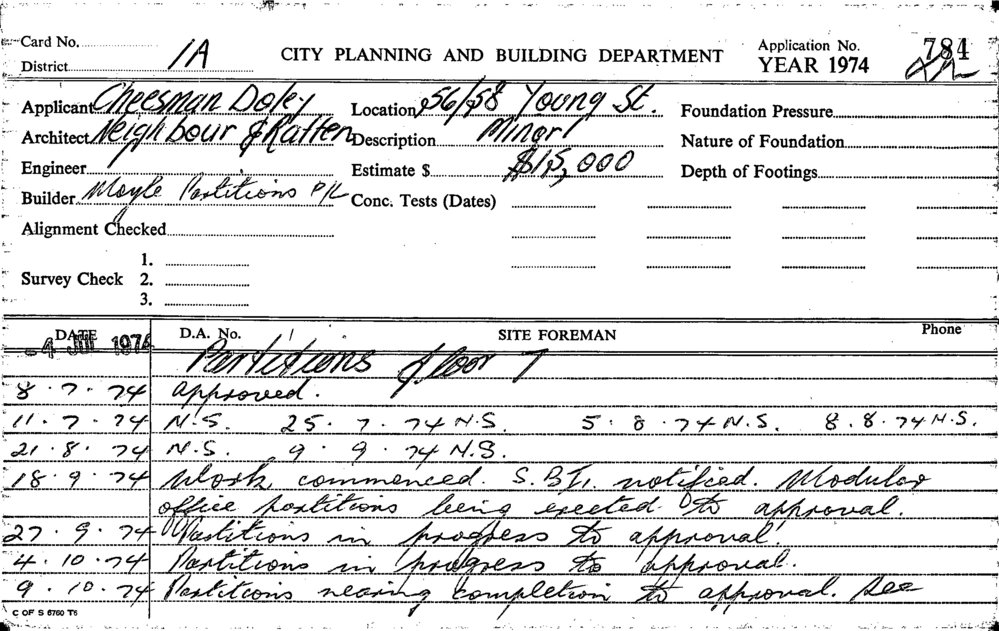 Card No.
District 1A
CITY PLANNING AND BUILDING DEPARTMENT
Application No. 784
YEAR 1974
Applicant Cheesman Doley
Location 56/58 Young St.
Foundation Pressure
Architect Neighbour & Ratten
Description Minor
Nature of Foundation
Engineer
Estimate $ $15,000
Depth of Footings
Builder Moyle Partitions P/L
Conc. Tests (Dates)
Alignment Checked
Survey Check
1.
2.
3.
DATE D.A. No. SITE FOREMAN Phone
-4 JUL 1974 Partitions floor 7
8 . 7 . 74 approved.
11 . 7 . 74 N.S. 25 . 7 . 74 N.S. 5 . 8 . 74 N.S. 8 . 8 . 74 N.S.
21 . 8 . 74 N.S. 9 . 9 . 74 N.S.
18 . 9 . 74 Work commenced. S.B.I. notified. Modular
office partitions being erected to approval.
27 . 9 . 74 Partitions in progress to approval.
4 . 10 . 74 Partitions in progress to approval.
9 . 10 . 74 Partitions nearing completion to approval. See
C OF S 6760 T5